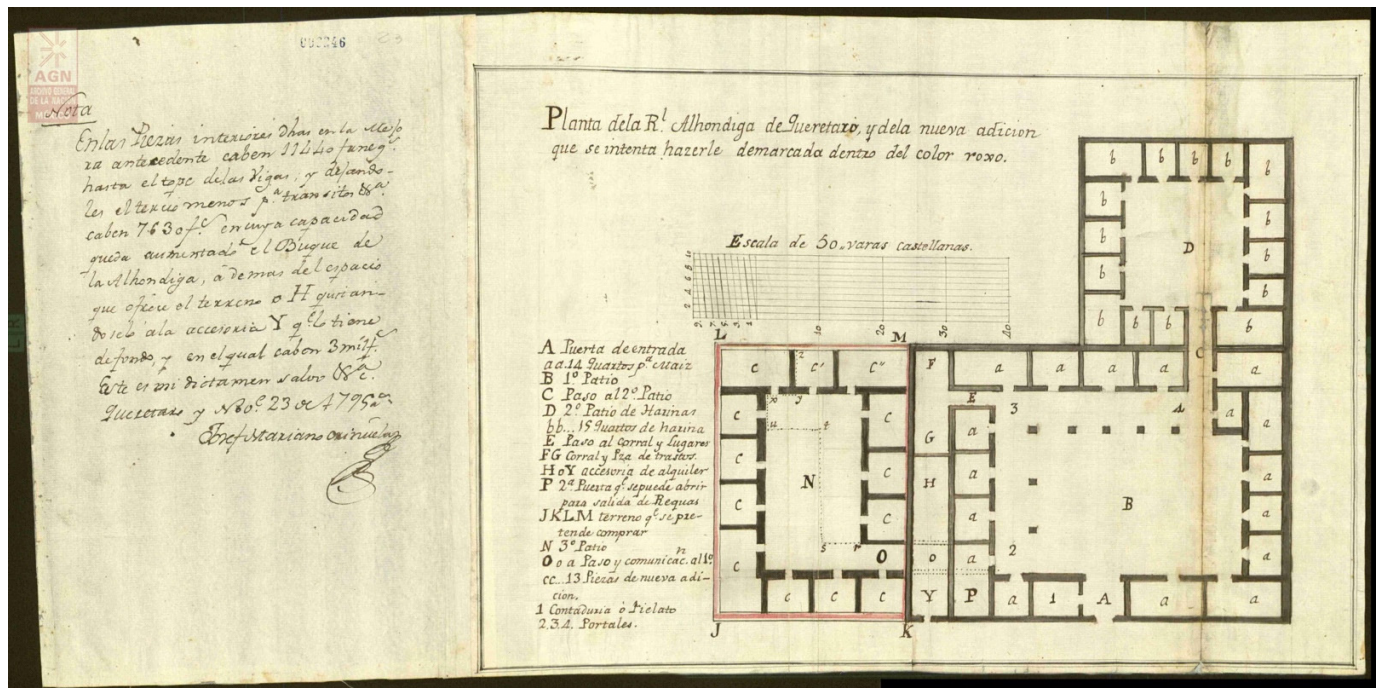 000246
AGN
ARCHIVO GENERAL
DE LA NACIÓN
Nota
En las Piezas interiores dhas en la Meso
ra antecedente caben 11440 faneg.s
hasta el tope de las Vigas, y dejando-
les el tercio menos p.a transitos &.a
caben 7630 f.s en cuya capacidad
queda aumentado el Buque de
la Alhondiga, ademas del espacio
que ofrece el terreno o H quitan-
dosele ala accesoria Y q.e lo tiene
de fondo, y en el qual caben 3 mil f.s
Este es mi dictamen salvo &.a
Queretaro y Nov.e 23 de 1795
Josef Mariano Orihuela
Planta dela R.l Alhondiga de Queretaro, y dela nueva adicion
que se intenta hazerle demarcada dentro del color roxo.
Escala de 50 varas castellanas.
10 20 30 40
A Puerta de entrada
aa.14 Quartos p.a Maiz
B 1º Patio
C Paso al 2º Patio
D 2º Patio de Harinas
bb...15 Quartos de harina
E Paso al corral y Lugares
FG Corral y Pza de trastos.
HoY accesoria de alquiler
P 2ª Puerta q.e se puede abrir
para salida de Requas
JKLM terreno q.e se pre-
tende comprar
N 3º Patio
O o a Paso y comunicac.n al 1º
cc...13 Piezas de nueva adi-
cion.
1 Contaduria ò Fielato
2.3.4. Portales.
L M
J K
b b b b b
b b
b D b
b b
b b b b
C
c c' c" F a a a a a
x y E 3 4 a
u t
c c G a a
c N c H a B a
c c a a
s r 2
c O o a a
c c c Y P a 1 A a a